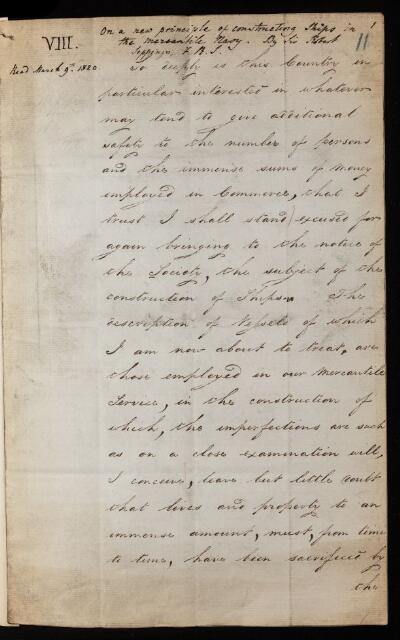 VIII.
On a new principle of constructing Ships in
the mercantile Navy. By Sir Robt
Seppings, F.R.S.
1
11
Read March 9th. 1820
So deeply is this Country in
particular interested in whatever
may tend to give additional
safety to the number of persons
and the immense sums of money
employed in Commerce, that I
trust I shall stand excused for
again bringing to the notice of
the Society, the subject of the
construction of Ships. The
description of Vessels of which
I am now about to treat, are
those employed in our Mercantile
Service, in the construction of
which, the imperfections are such
as on a close examination will,
I conceive, leave but little doubt
that lives and property to an
immense amount, must, from time
to time, have been sacrificed by
the